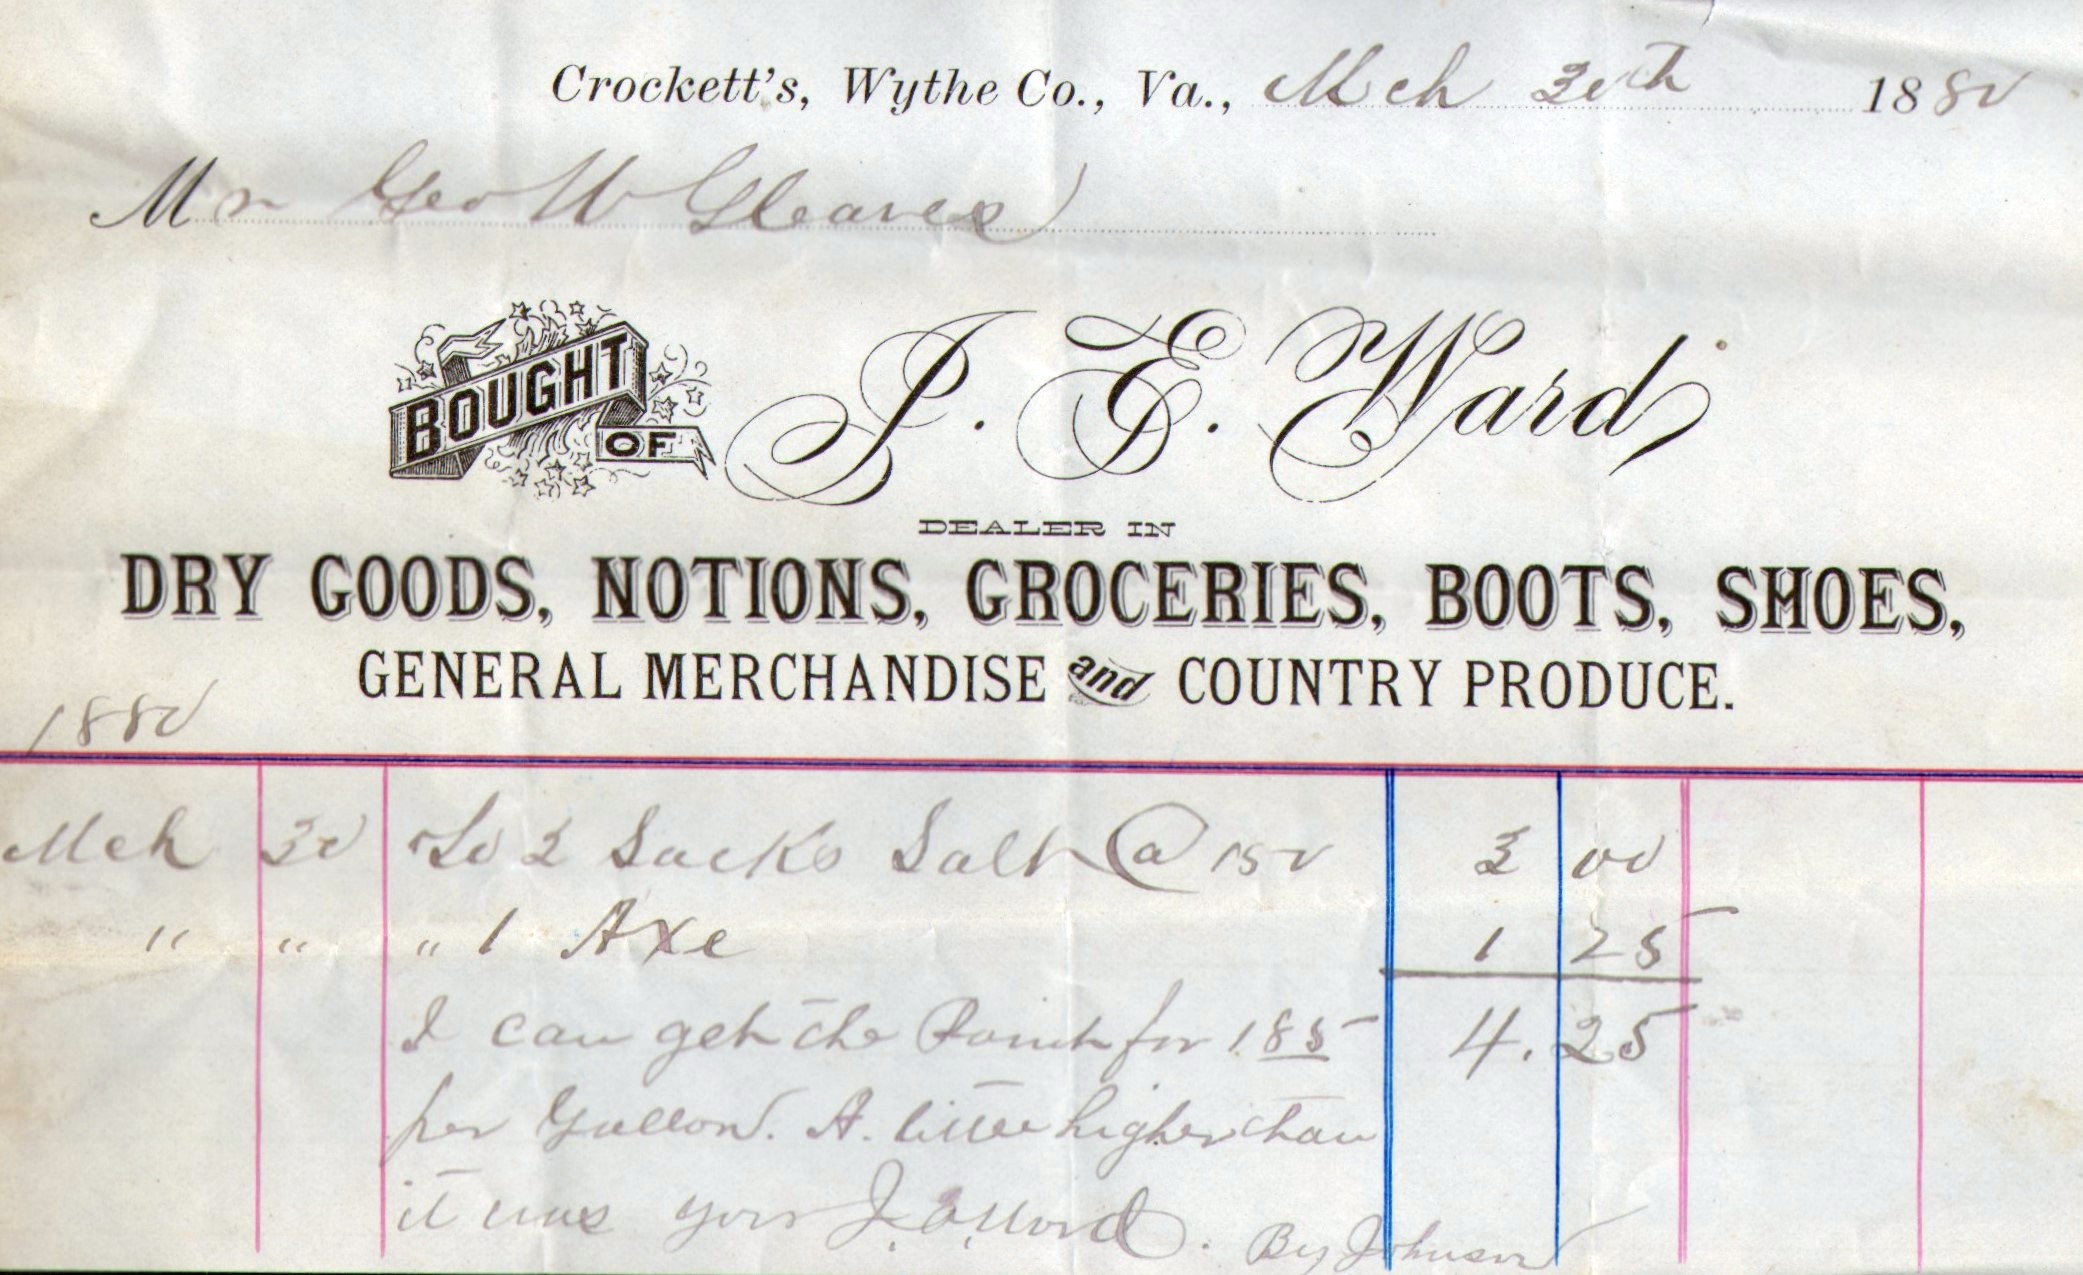 Crockett's, Wythe Co., Va., Mch 30th 1880
Mr Geo W Gleaves
BOUGHT OF J. E. Ward
DEALER IN
DRY GOODS, NOTIONS, GROCERIES, BOOTS, SHOES,
GENERAL MERCHANDISE and COUNTRY PRODUCE.
1880
Mch 30 To 2 Sacks Salt @ 150 3 00
" " " 1 Axe 1 25
I can get the Paint for 1.85 4.25
per Gallon. A little higher than
it was yors J. E. Ward.
By Johnson